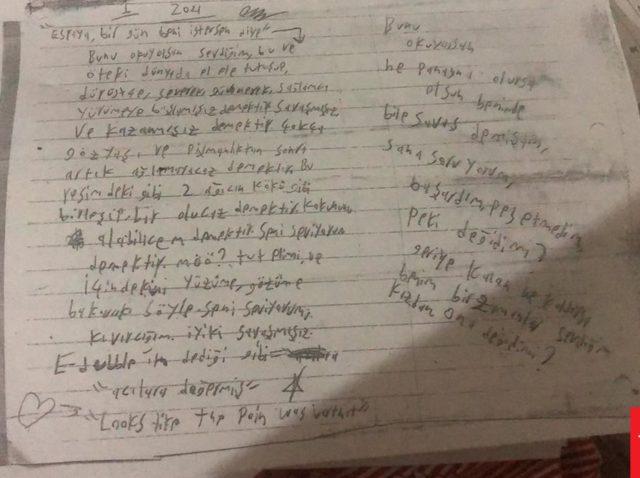 I 2021
"ESPAYA, bir gün beni istersen diye"
Bunu okuyorsan sevdiğim, bu ve
öteki dünyada el ele tutuşup,
dürüstçe, severek, güvenerek, sağlamca
yürümeye başlamışız demektir savaşmışız
ve kazanmışız demektir çokça
göz yaşı, ve pişmanlıktan sonra
artık ağlamıcaz demektir. Bu
resimdeki gibi 2 ağacın kökü gibi
birleşip bir olucaz demektir kokunu
alabilicem demektir seni seviyorum
demektir. möö? tut elimi, ve
içindekini yüzüme, gözüme
bakarak söyle-seni seviyorum,
kıvırcığım. iyiki savaşmışız.
E-dubble ın dediği gibi
"acılara değermiş"
"Looks like the Pain was worth it"
Bunu
okuyorsan
ne pahasına olursa
olsun benimle
bile savaş demiştim,
sana soruyorum,
başardım, pes etmedim
peki değdimi?
geriye kalan ne kaldıysa
benim bir zamanlar sevdiğim
kızdan ona değdimi?